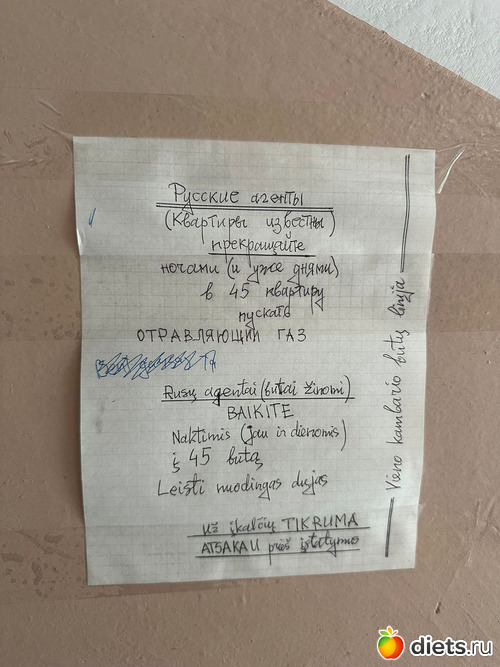 Русские агенты
(Квартиры известны)
прекращайте
ночами (и уже днями)
в 45 квартиру
пускать
ОТРАВЛЯЮЩИЙ ГАЗ
Rusų agentai (butai žinomi)
BAIKITE
Naktimis (jau ir dienomis)
į 45 butą
Leisti nuodingas dujas
Už įkalčių TIKRUMĄ
ATSAKAU prieš įstatymo
Vieno kambario butų linija
diets.ru